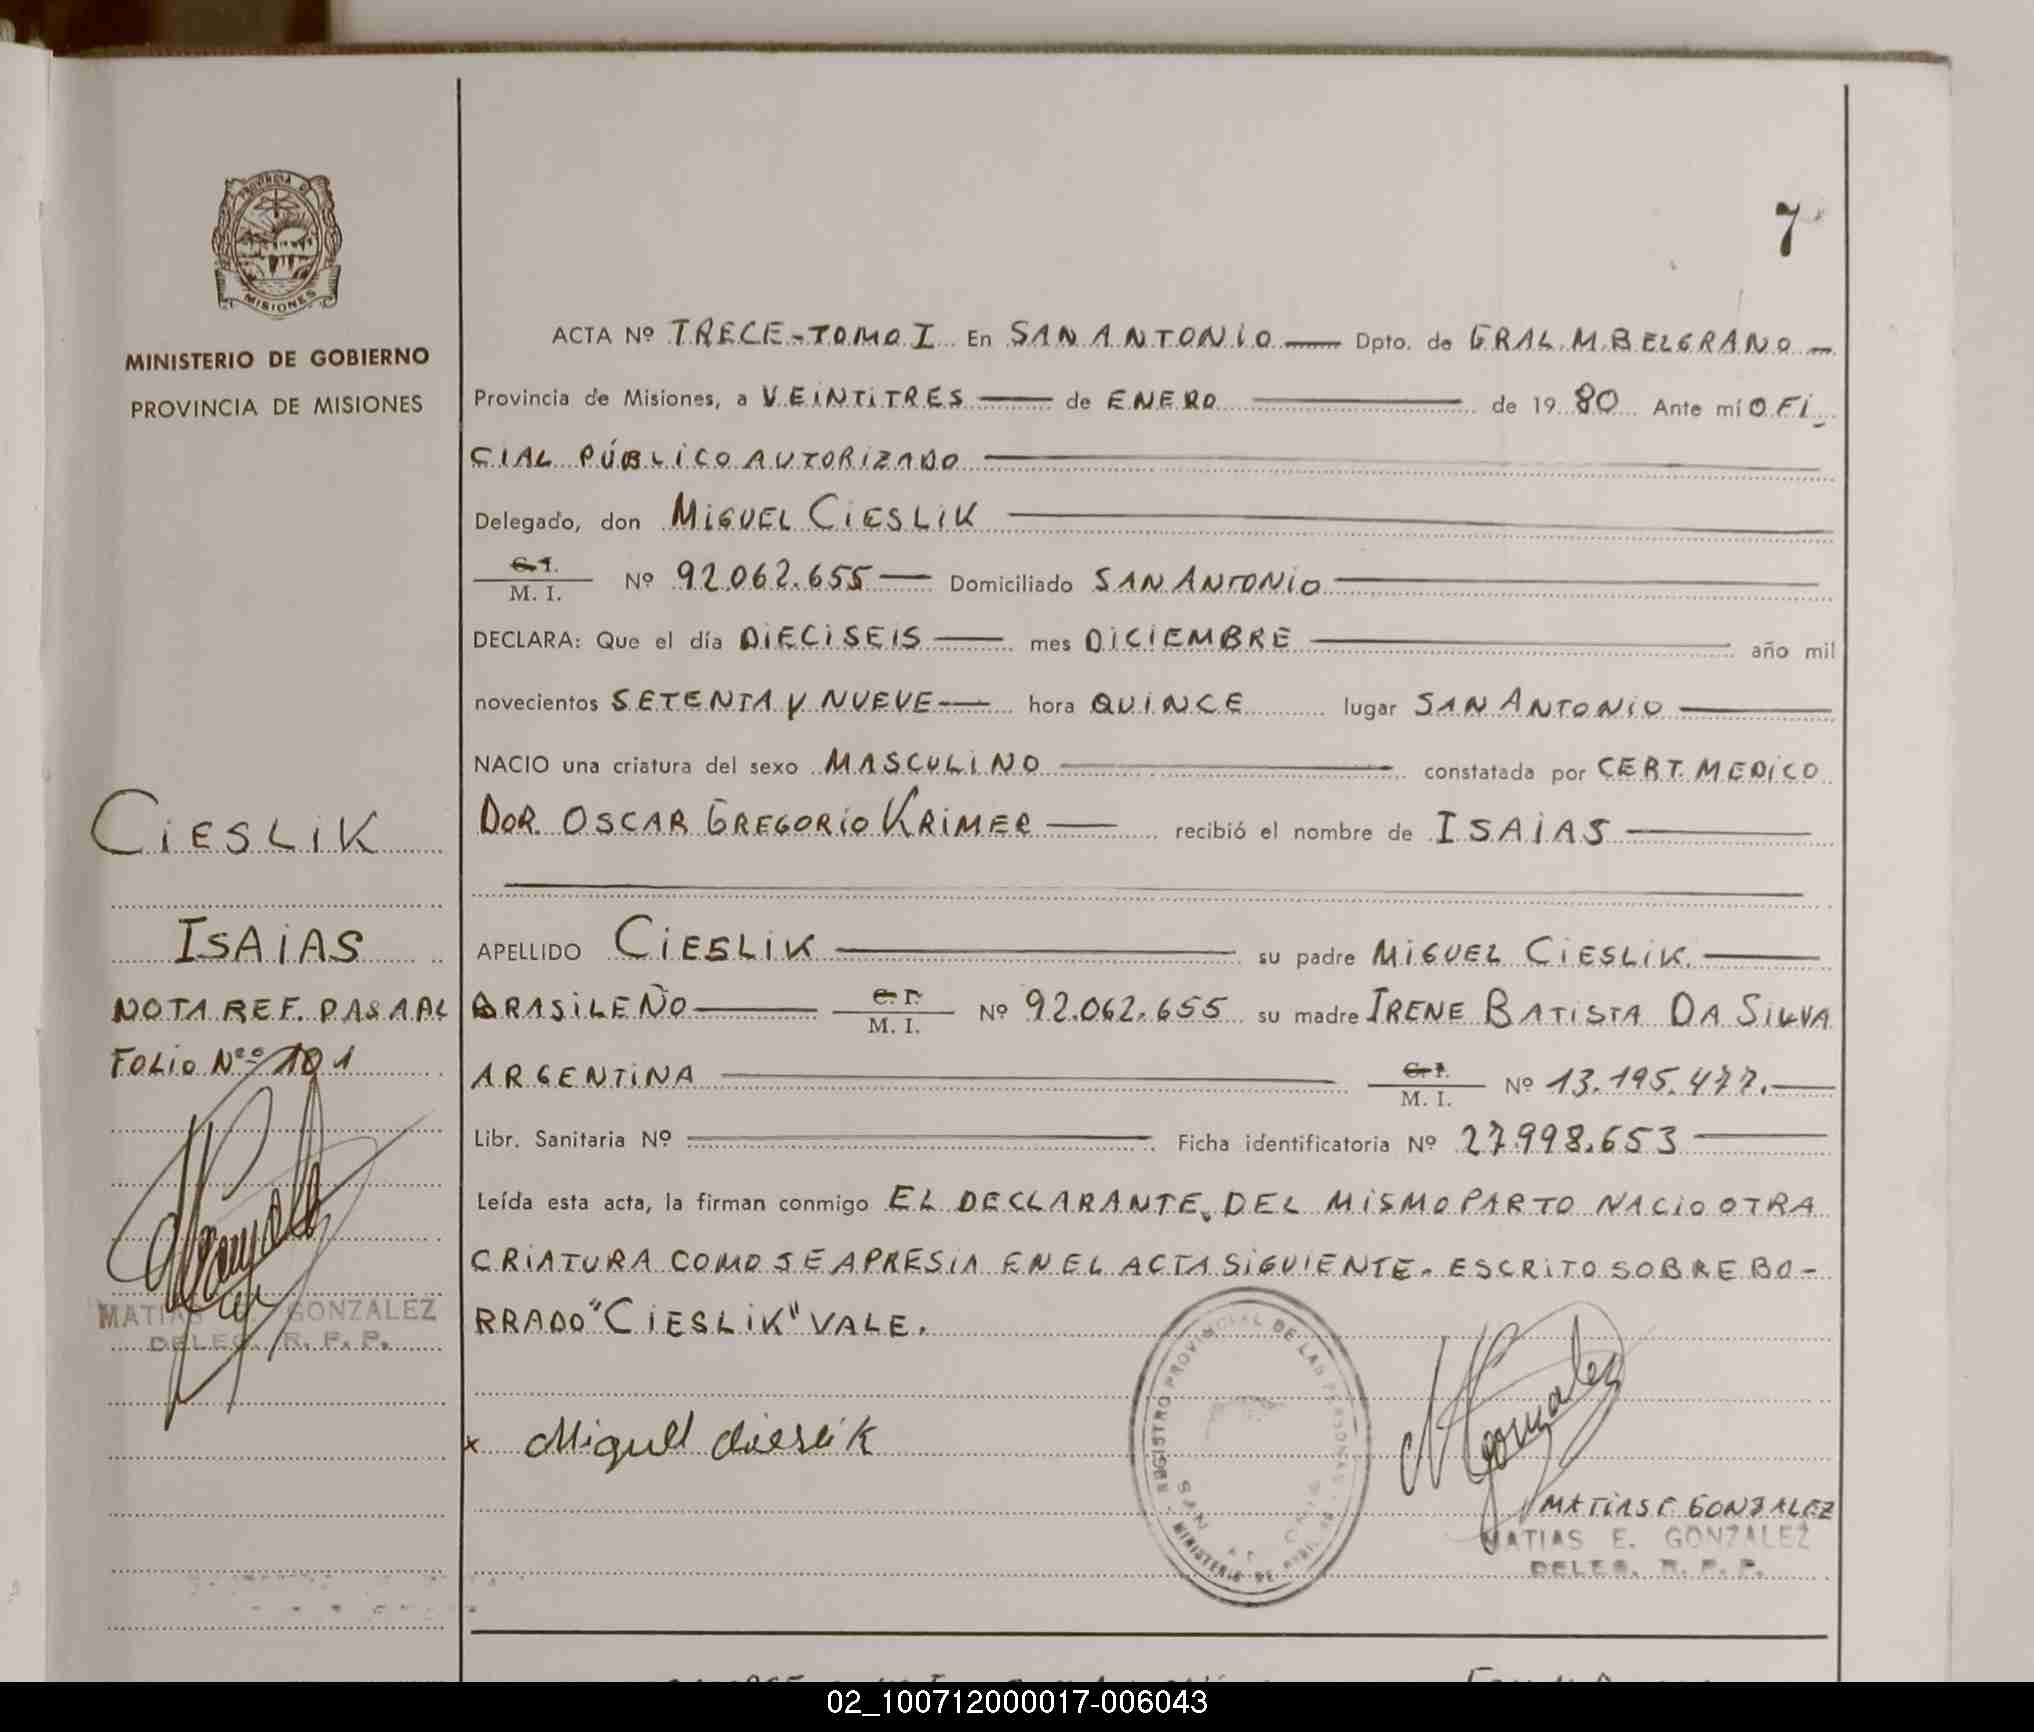 7
PROVINCIA DE
MISIONES
MINISTERIO DE GOBIERNO
PROVINCIA DE MISIONES
ACTA Nº TRECE-TOMO I En SAN ANTONIO Dpto. de GRAL. M. BELGRANO
Provincia de Misiones, a VEINTITRES de ENERO de 19 80 Ante mí OFI-
CIAL PÚBLICO AUTORIZADO
Delegado, don MIGUEL CIESLIK
C. I.
M. I. Nº 92.062.655 Domiciliado SAN ANTONIO
DECLARA: Que el día DIECISEIS mes DICIEMBRE año mil
novecientos SETENTA Y NUEVE hora QUINCE lugar SAN ANTONIO
NACIO una criatura del sexo MASCULINO constatada por CERT. MEDICO
DOR. OSCAR GREGORIO KRIMER recibió el nombre de ISAIAS
APELLIDO CIESLIK su padre MIGUEL CIESLIK.
BRASILEÑO C. I. M. I. Nº 92.062.655 su madre IRENE BATISTA DA SILVA
ARGENTINA C. I. M. I. Nº 13.195.477.
Libr. Sanitaria Nº Ficha identificatoria Nº 27.998.653
Leída esta acta, la firman conmigo EL DECLARANTE. DEL MISMO PARTO NACIO OTRA
CRIATURA COMO SE APRESIA EN EL ACTA SIGUIENTE. ESCRITO SOBRE BO-
RRADO "CIESLIK" VALE.
CIESLIK
ISAIAS
NOTA REF. PASA AL
FOLIO Nº 101
MATIAS E. GONZALEZ
DELEG. R. P. P.
x Miguel Cieslik
REGISTRO PROVINCIAL DE LAS PERSONAS
MINISTERIO DE
M Gonzalez
MATIAS E. GONZALEZ
MATIAS E. GONZALEZ
DELEG. R. P. P.
02_100712000017-006043